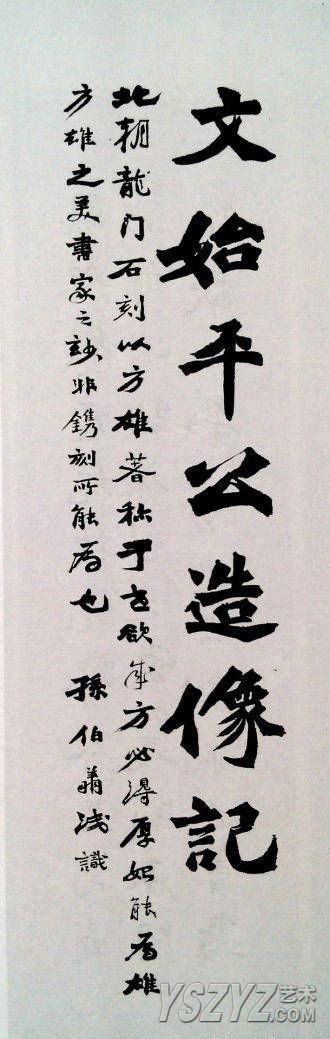 文始平公造像记
北朝龍门石刻以方雄著称于世欲成方必得厚始能为雄
方雄之美書家之訣非鐫刻所能为也 孫伯翔浅識
YSZYZ艺术